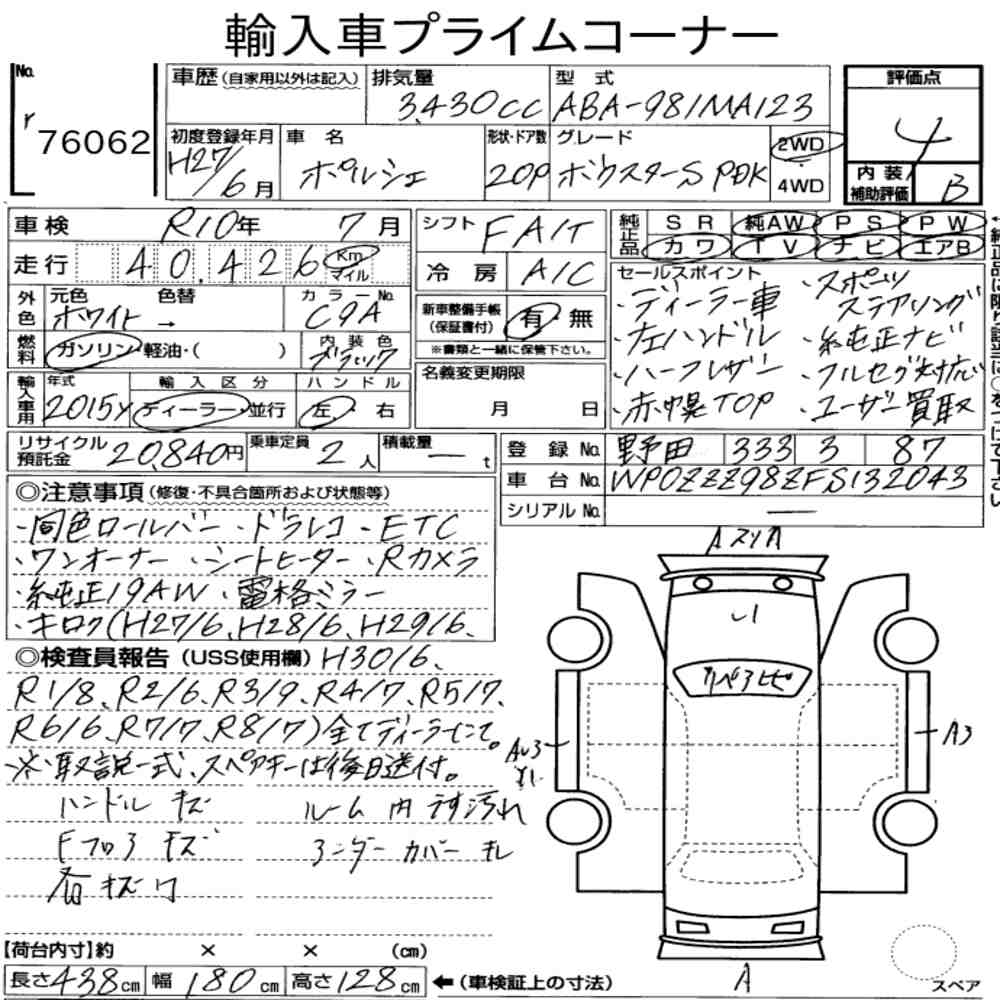 輸入車プライムコーナー
No.
r
76062
車歴 (自家用以外は記入)
排気量
3,430cc
型式
ABA-981MA123
評価点
4
初度登録年月
H27/6月
車名
ポルシェ
形状・ドア数
20P
グレード
ボクスターS PDK
2WD
4WD
内装
補助評価
B
車検 R10年 7月
シフト FA1T
純正品 SR 純AW PS PW
カワ TV ナビ エアB
走行 40,426 Km マイル
冷房 A/C
セールスポイント
・ディーラー車
・左ハンドル
・ハーフレザー
・赤幌TOP
・スポーツ
ステアリング
・純正ナビ
・フルセグ対応
・ユーザー買取
外色 元色 色替 カラーNo.
ホワイト → C9A
新車整備手帳
(保証書付) 有 無
※書類と一緒に保管下さい。
燃料 ガソリン・軽油・( )
内装色 ブラック
名義変更期限
月 日
輸入車用 年式 輸入区分 ハンドル
2015y ディーラー・並行 左・右
リサイクル
預託金 20,840円
乗車定員 2人
積載量 ー t
登録No. 野田 333 ろ 87
車台No. WP0ZZZ98ZFS132043
シリアルNo. ー
◎注意事項 (修復・不具合箇所および状態等)
・同色ロールバー ・ドラレコ ・ETC
・ワンオーナー ・シートヒーター ・Rカメラ
・純正19AW ・電格ミラー
・キロク(H27/6、H28/6、H29/6、
◎検査員報告 (USS使用欄) H30/6、
R1/8、R2/6、R3/9、R4/7、R5/7、
R6/6、R7/7、R8/7)全てディーラーにて。
※取説一式、スペアキーは後日送付。
ハンドル キズ
ルーム内 うす汚れ
Fフロア キズ
アンダーカバー キレ
各キズ ワ
A
AU3
A3
A
スペア
【荷台内寸】約 × × (cm)
長さ438cm 幅180cm 高さ128cm ←(車検証上の寸法)